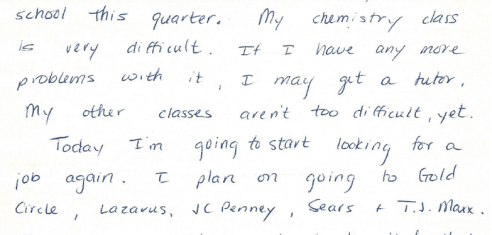 school this quarter. My chemistry class
is very difficult. If I have any more
problems with it, I may get a tutor.
My other classes aren't too difficult, yet.
Today I'm going to start looking for a
job again. I plan on going to Gold
Circle, Lazarus, JC Penney, Sears + T.J. Maxx.